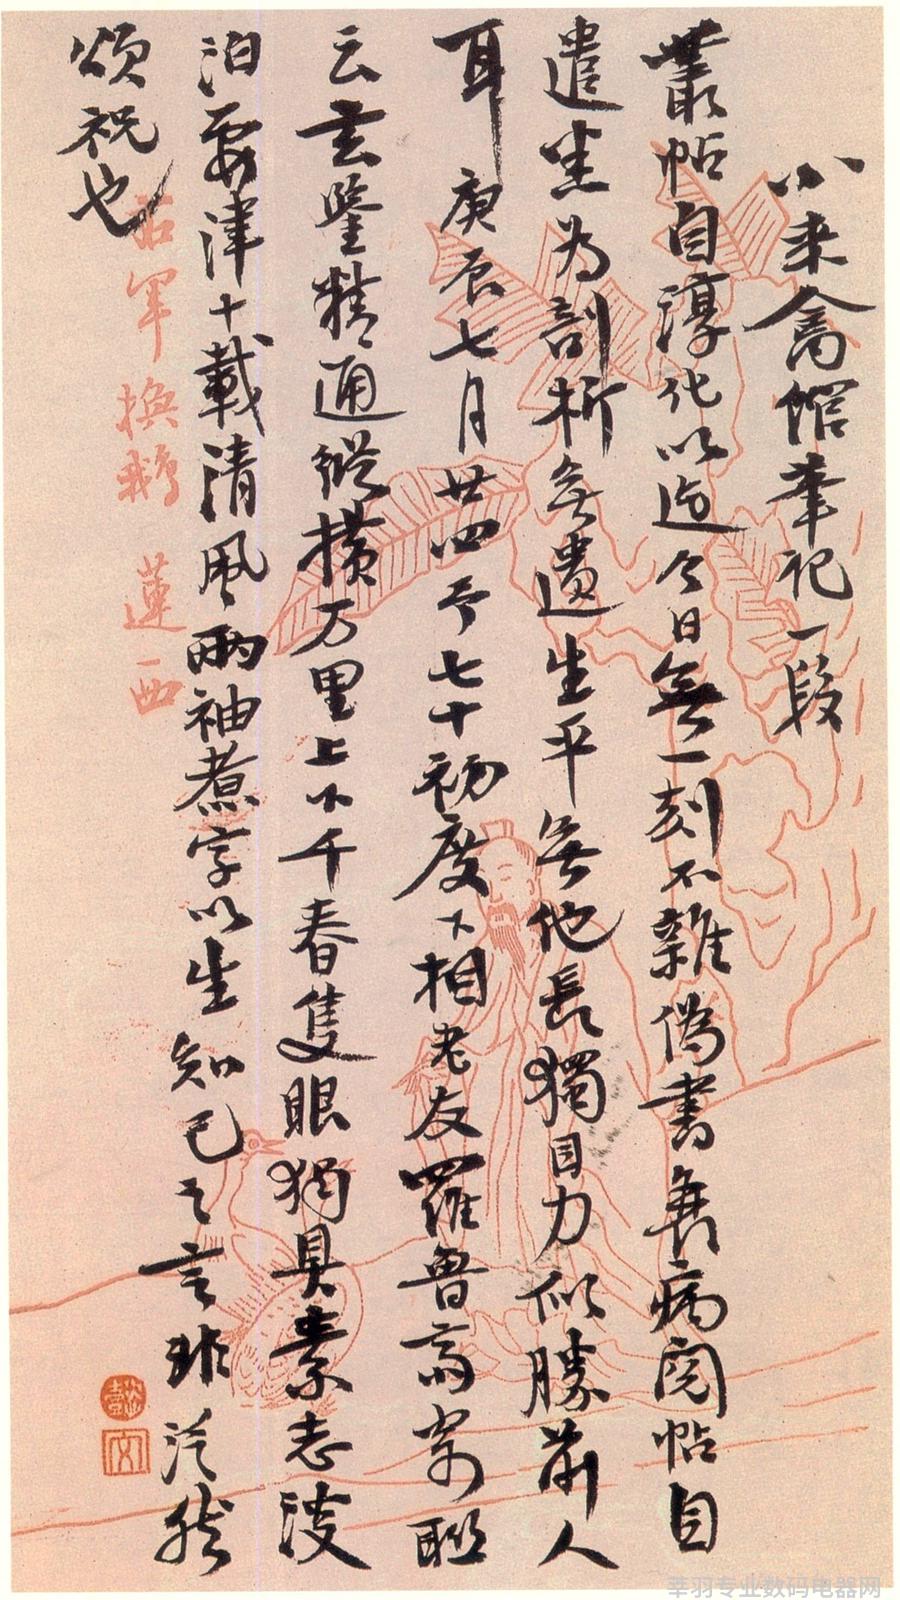 小来禽馆笔记一段
丛帖自淳化以迄今日无一刻不杂伪书衰病阅帖自
遣坐为剖析无遗生平无他长独目力似胜前人
耳庚辰七月廿四予七十初度下相老友罗鲁斋寄联
云玄鉴精通纵横万里上下千春隻眼独具素志淡
泊要津十载清风两袖煮字以生知己之言非泛然
颂祝也
右军换鹅 莲西
莘羽专业数码电器网